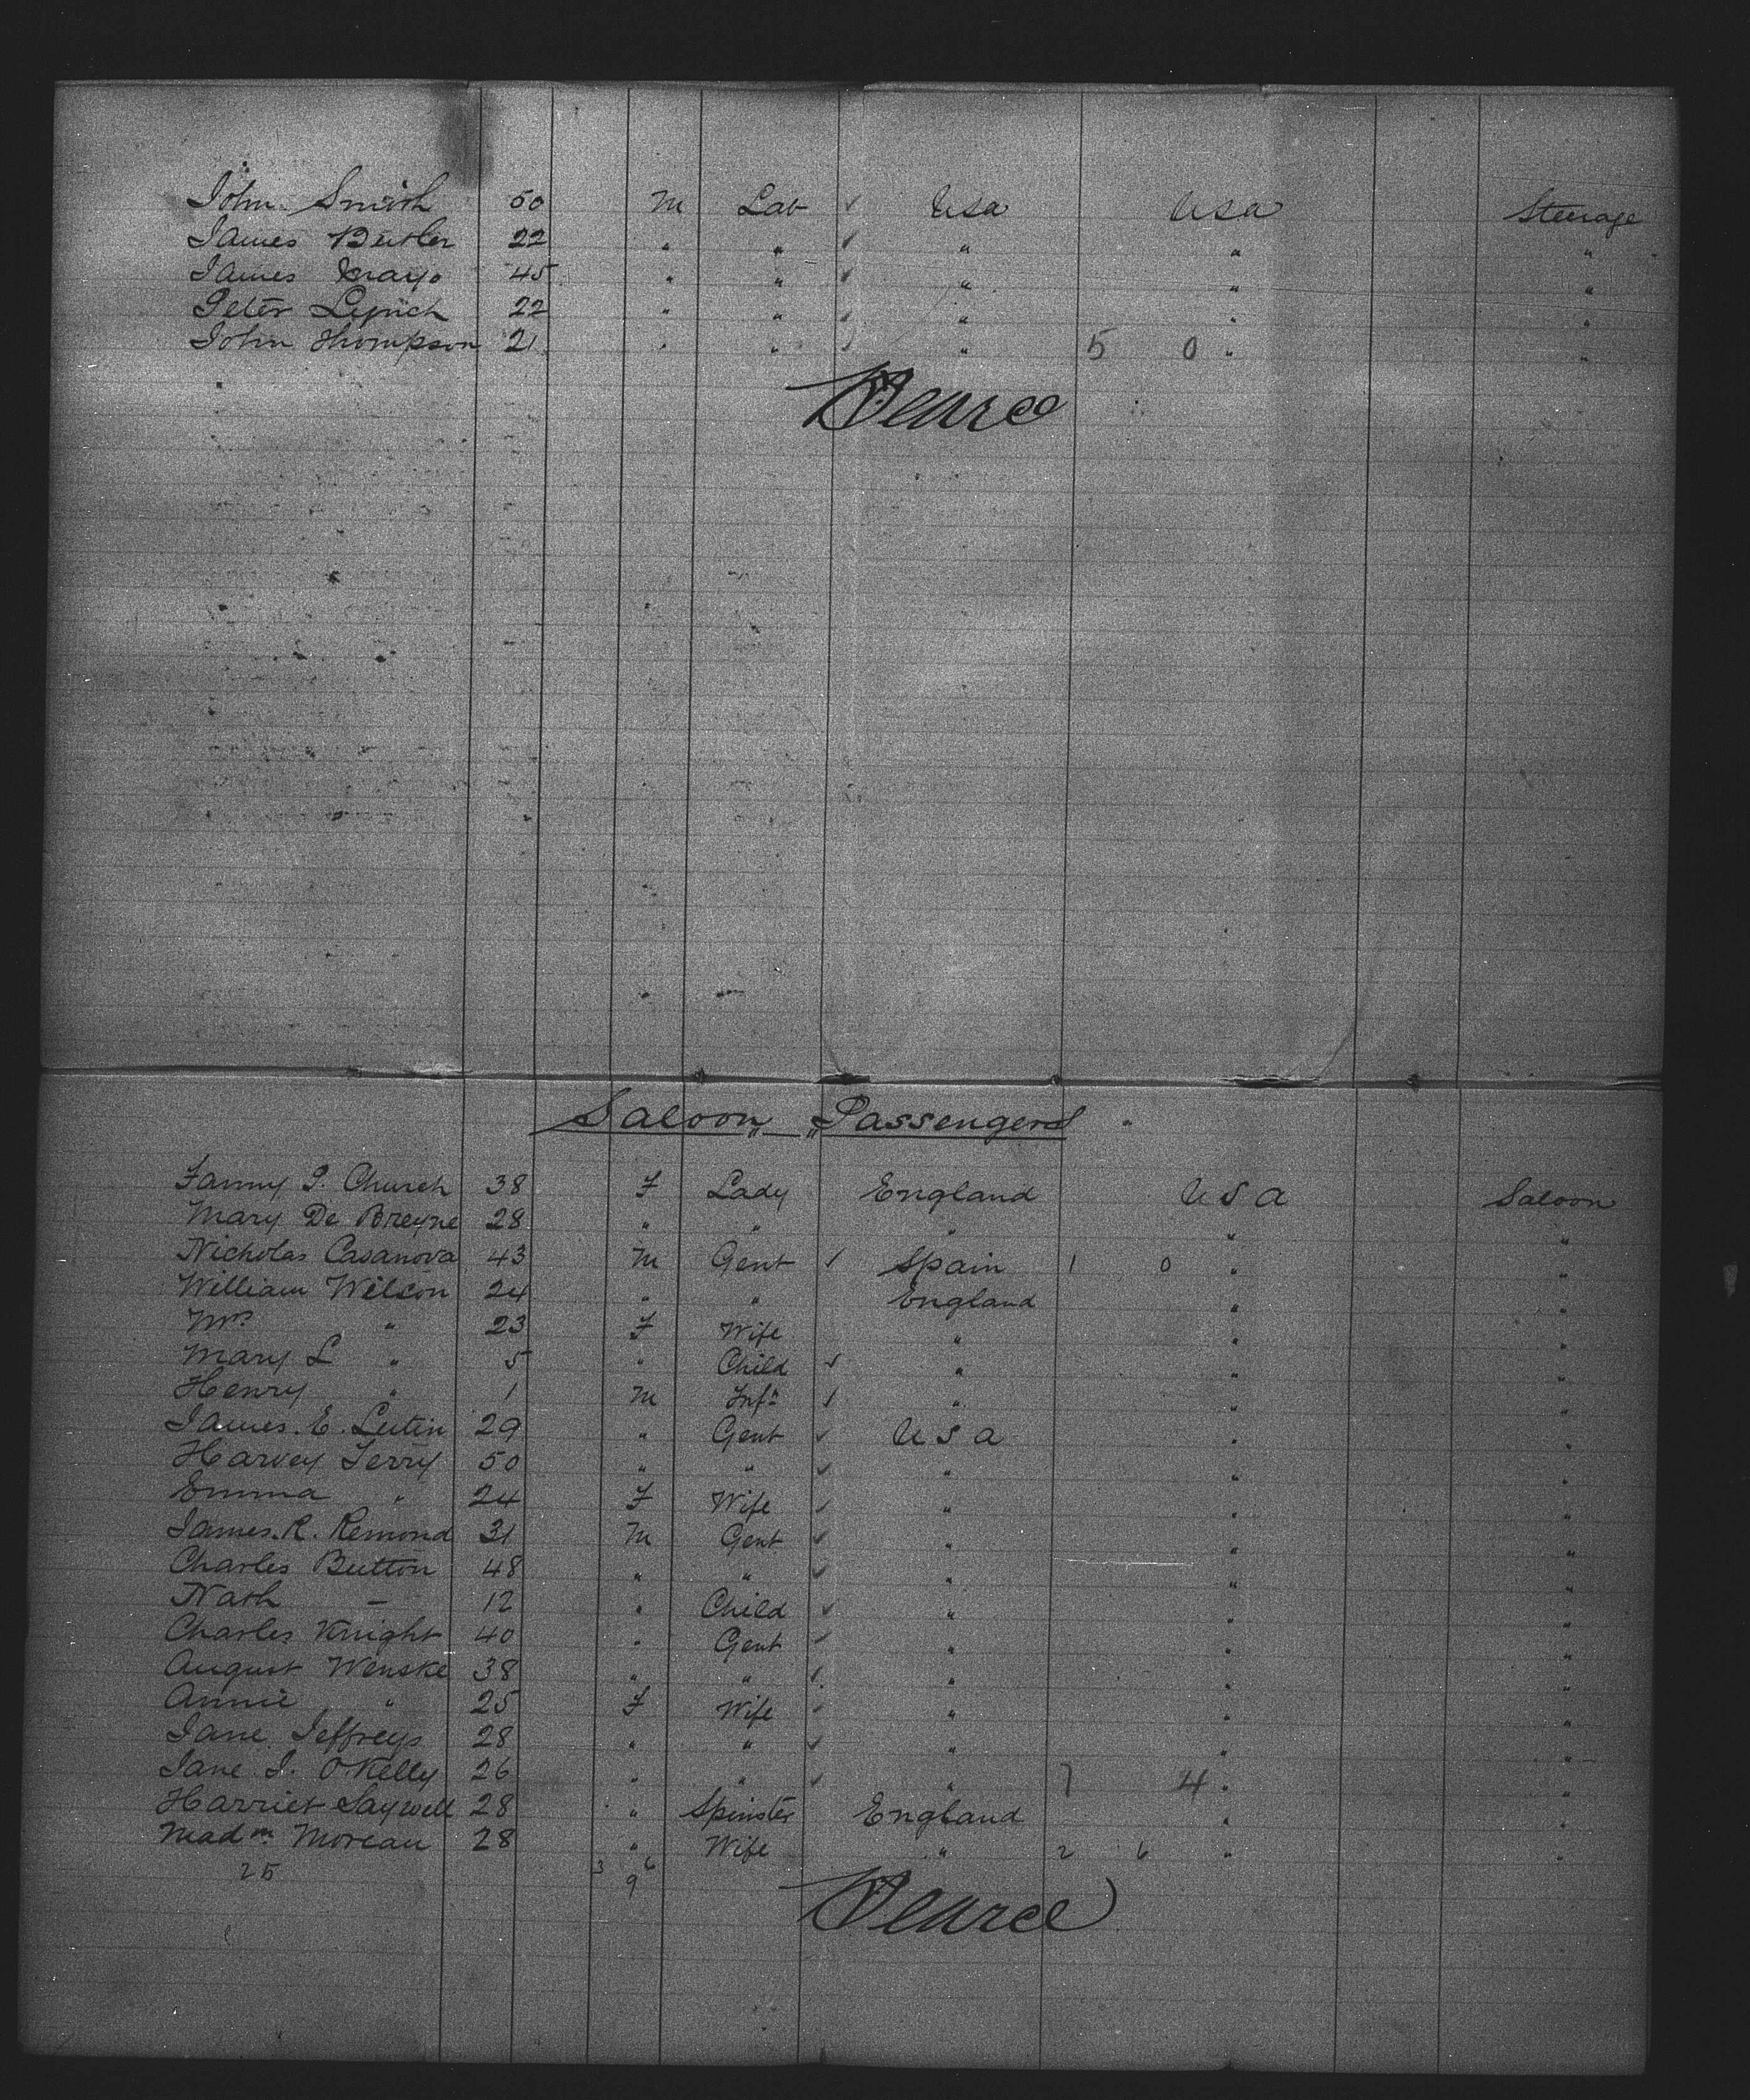 John Smith 50 M Lab ✓ USA USA Steerage
James Butler 22 " " ✓ " " "
James Mayo 45 " " ✓ " " "
Peter Lynch 22 " " ✓ " " "
John Thompson 21 " " ✓ " 5 0 " "
Pearce
Saloon Passengers
Fanny I. Church 38 F Lady England U S A Saloon
Mary De Breyne 28 " " " " "
Nicholas Casanova 43 M Gent ✓ Spain 1 0 " "
William Wilson 24 " " England " "
Mrs " 23 F Wife " " "
Mary L " 5 " Child ✓ " " "
Henry " 1 M Inft ✓ " " "
James. E. Lutin 29 " Gent ✓ U S A " "
Harvey Terry 50 " " ✓ " " "
Emma " 24 F Wife ✓ " " "
James. R. Remond 31 M Gent ✓ " " "
Charles Button 48 " " ✓ " " "
Nath — 12 " Child ✓ " " "
Charles Knight 40 " Gent ✓ " " "
August Wenske 38 " " ✓ " " "
Annie " 25 F Wife ✓ " " "
Jane Jeffreys 28 " " ✓ " " "
Jane I. O'Kelly 26 " " ✓ " 7 4 " "
Harriet Saywell 28 " Spinster England " "
Madm Moreau 28 " Wife " 2 6 " "
25 3 6
9
Pearce